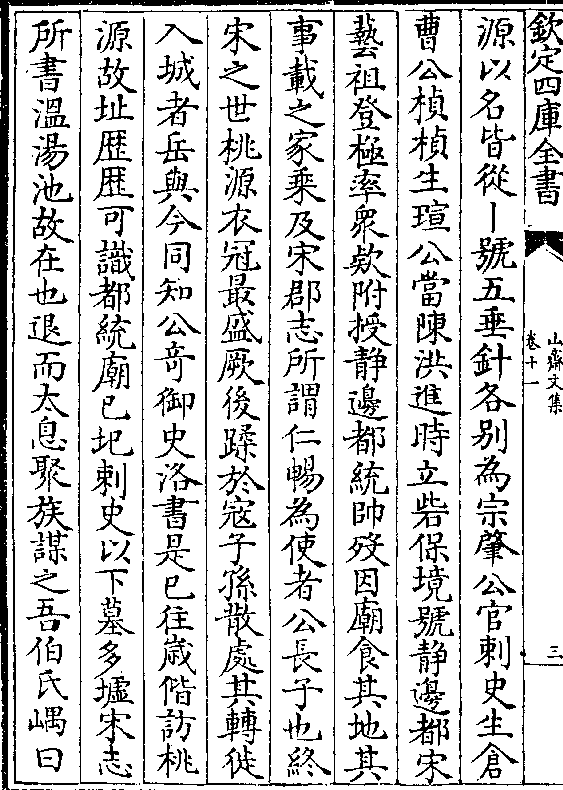 欽定四庫全書
山齋文集
卷十一
三
源以名皆從丨號五垂針各别為宗肇公官刺史生倉
曹公楨楨生瑄公當陳洪進時立砦保境號静邊都宋
藝祖登極率衆欵附授静邊都統帥殁因廟食其地其
事載之家乘及宋郡志所謂仁暢為使者公長子也終
宋之世桃源衣冠最盛厥後蹂於寇子孫散處其轉徙
入城者岳與今同知公竒御史洛書是已往嵗偕訪桃
源故址歴歴可識都統廟已圯刺史以下墓多墟宋志
所書溫湯池故在也退而太息聚族謀之吾伯氏嵎曰